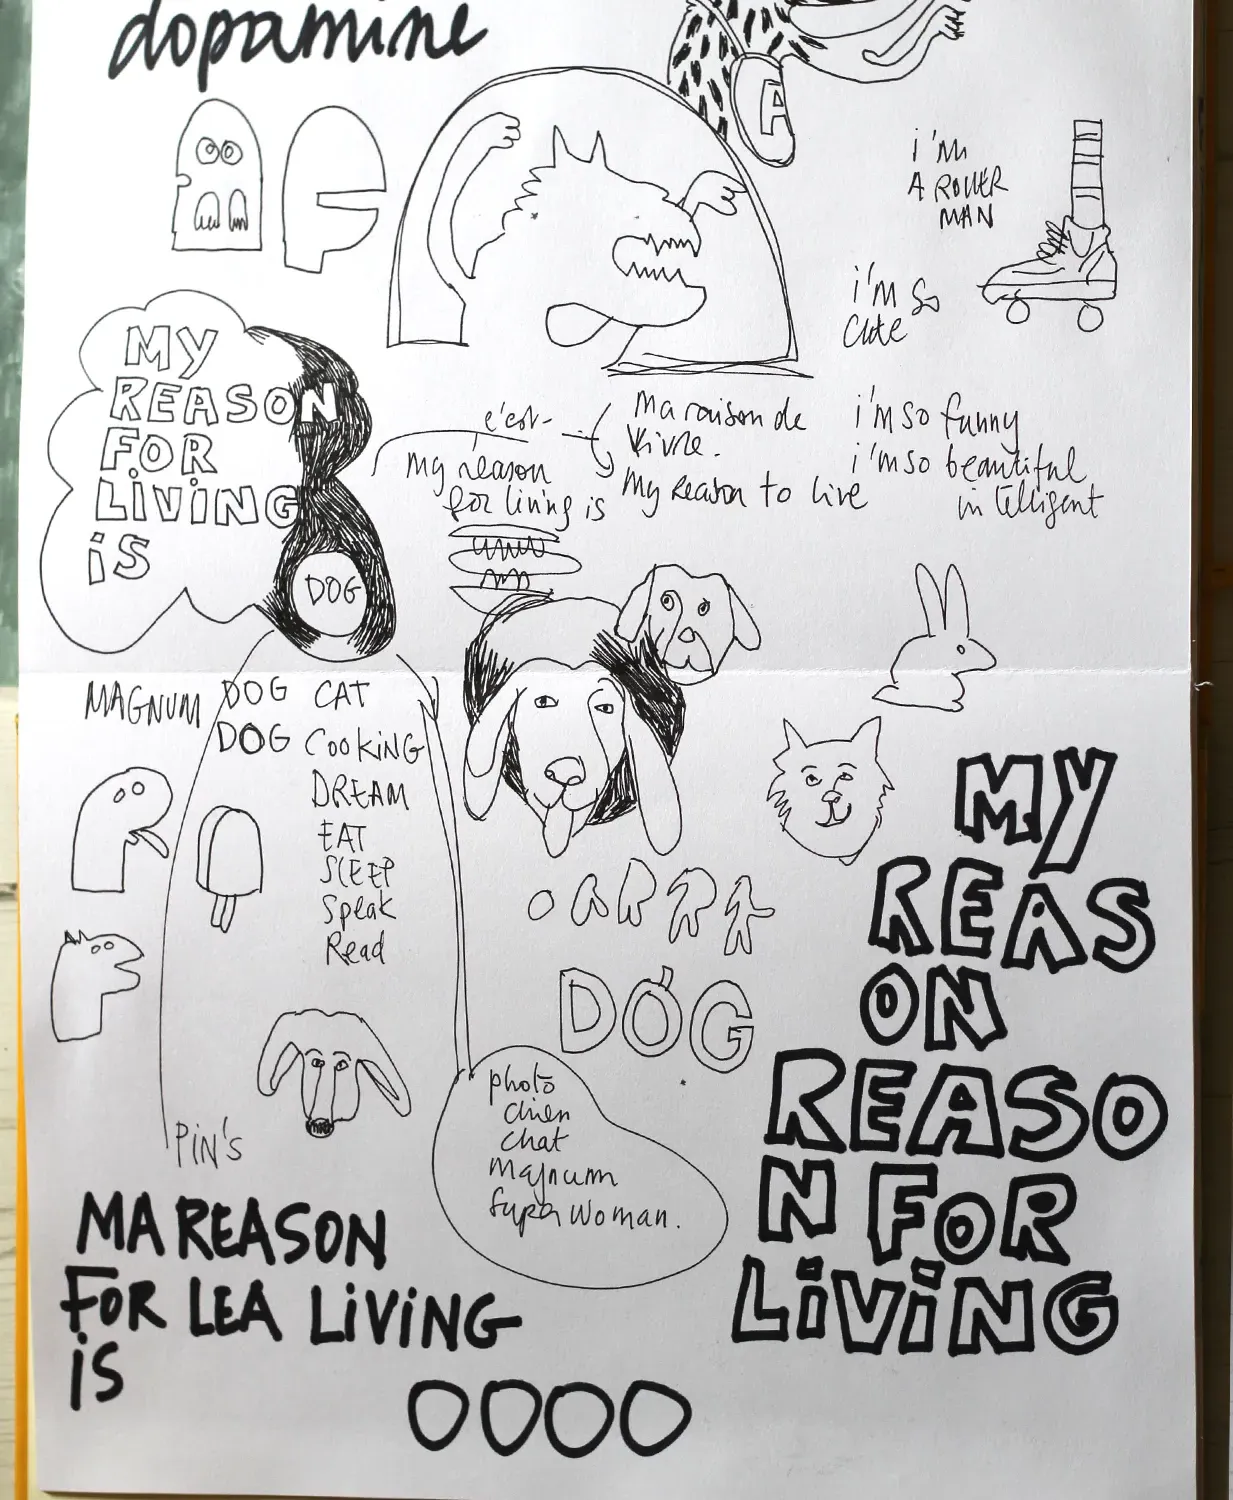 dopamine
A
i'm
A ROLLER
MAN
i'm so
cute
MY
REASON
FOR
LiViNG
iS
DOG
c'est-
my reason
for living is
ma raison de
vivre.
my reason to live
i'm so funny
i'm so beautiful
intelligent
MAGNUM
DOG CAT
DOG COOKiNG
DREAM
EAT
SLEEP
Speak
Read
DOG
PiN'S
photo
chien
chat
magnum
super woman.
MY
REAS
ON
REASO
N FOR
LiViNG
MA REASON
FOR LEA LiViNG
iS
OOOO